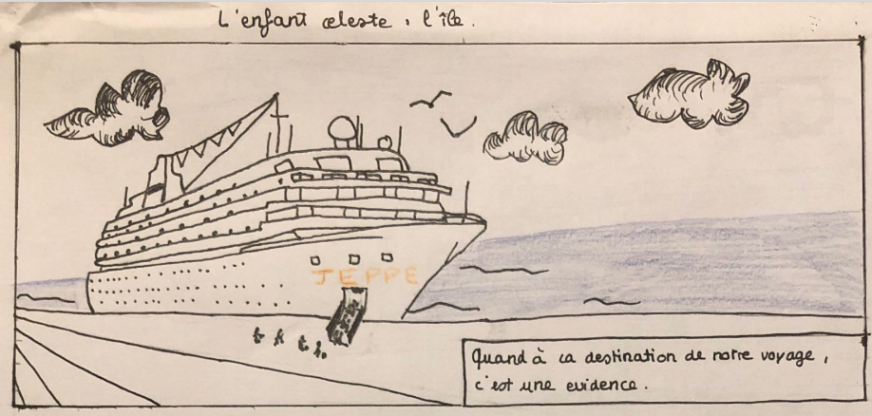 L'enfant céleste, l'île.
JEPPE
Quand à ca destination de notre voyage,
c'est une evidence.